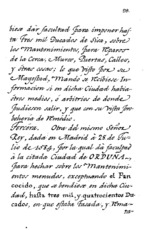 biese dar facultad para imponer hasta
tres mil Ducados de Sisa, sobre
los Mantenimientos, para Reparos
de la Cerca, Muros, Puertas, Calles,
y otras cosas; lo que visto por su
Magestad, Mandò se Recibiese In-
formacion si en dicha Ciudad habia
otros medios, ò arbitrios de donde
pudiesen salir, y que con su vista pro-
beheria de Remedio.
Tercera. Otra del mismo Señor
Rey, dada en Madrid à 28. de Ju-
de 1584. Por la qual dió facultad
à la citada Ciudad de ORDUÑA,
para hechar sobre los Mantenimi-
entos menudos, exceptuando el Pan
cocido, que se bendiese en dicha Ciu-
dad, hasta tres mil, y quatrocientos Du-
cados, en que estaba tasada, y Rema-
ta-